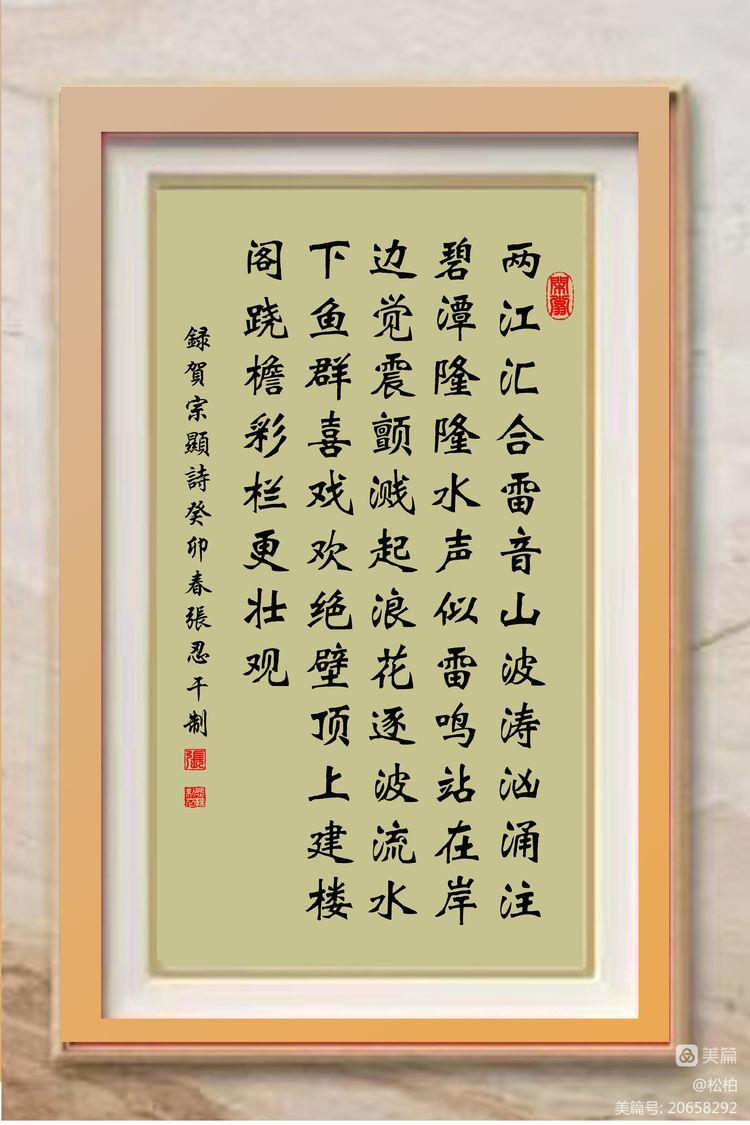 两江汇合雷音山波涛汹涌注
碧潭隆隆水声似雷鸣站在岸
边觉震颤溅起浪花逐波流水
下鱼群喜戏欢绝壁顶上建楼
阁跷檐彩栏更壮观
録賀宗顯詩癸卯春張忍干制
張
美篇
@松柏
美篇号: 20658292